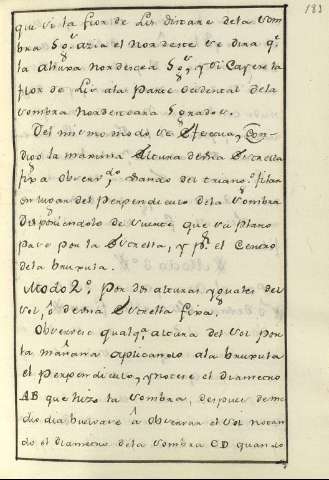 183
que si la flor de Lis distare de la som
bra 8 g.s azia el Nordeste se dira q.e
la aguja nordestea 8 g.s y si cayere la
flor de Lis a la parte occidental de la
sombra noroesteara 8 grados.
Del mismo modo se efectua, con
dicho la maxima altura de una Estrella
fixa observ.do, usando del triang.o filar
en lugar del perpendiculo de la sombra
disponiendolo de suerte que su plano
pase por la Estrella, y p.r el centro
de la bruxula.
Modo 2.º por dos alturas yguales del
sol, ô de una Estrella fixa.
Observese qualq.a altura del sol por
la mañana aplicando a la bruxula
el perpendiculo, y notese el diametro
AB que hizo la sombra, despues de me
dio dia buelvase â observar el sol notan
do el diametro de la sombra CD quando